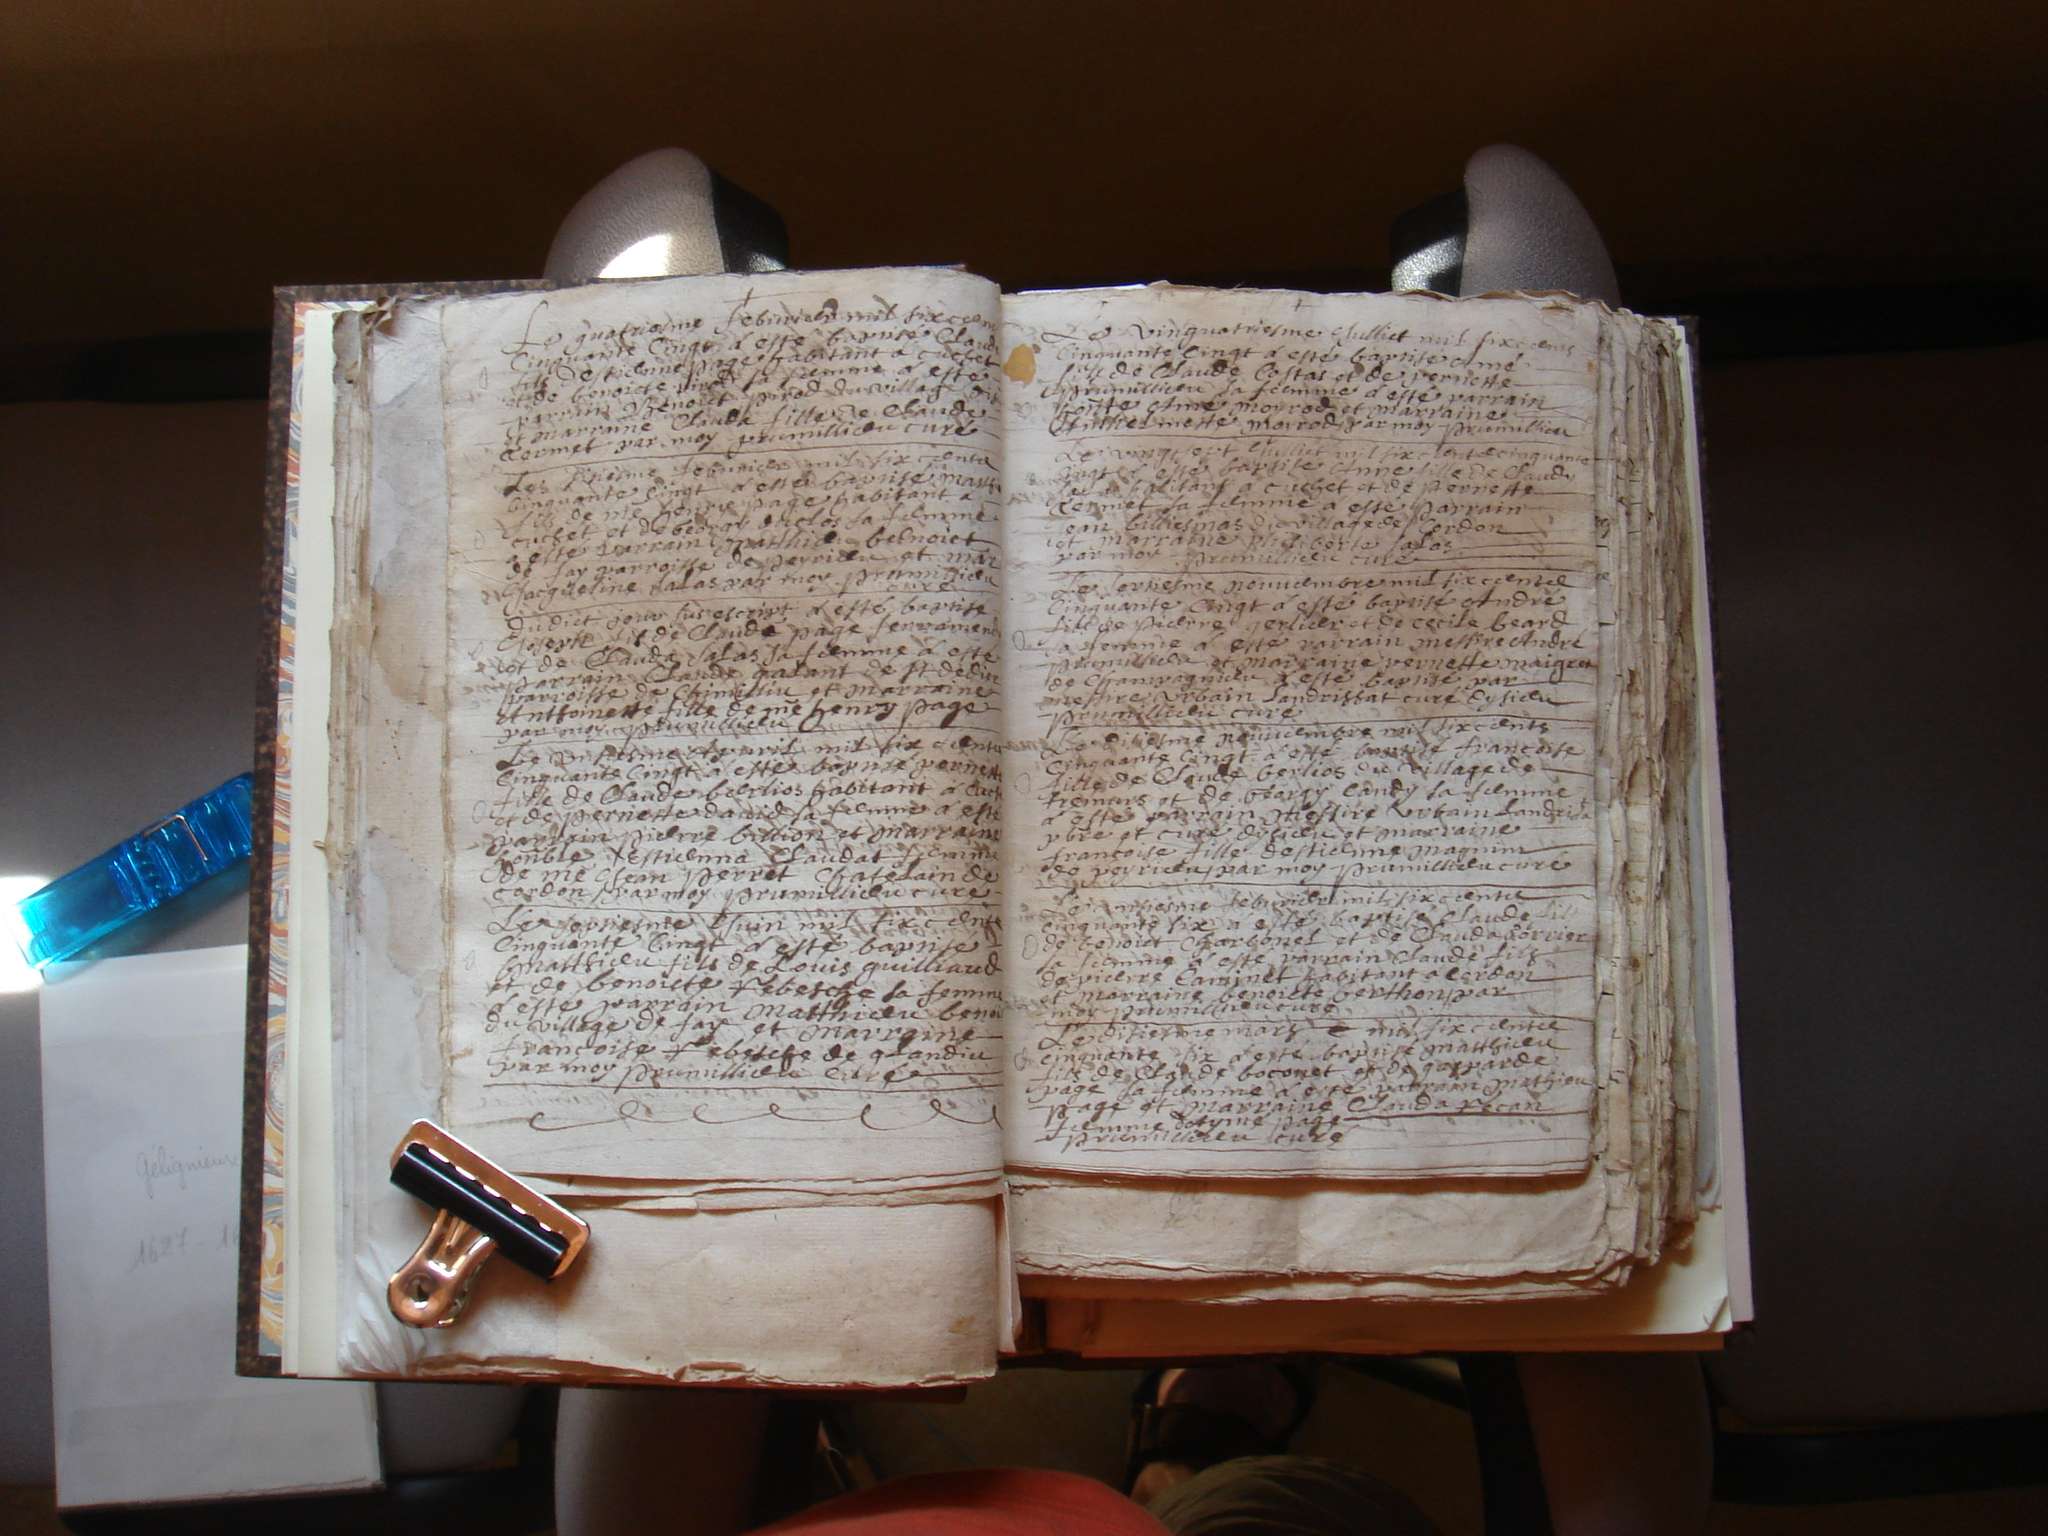 Le quatriesme febvrier mil six cens
Cinquante Cingt a esté baptisé Claude
fils destienne page habitant a Cuchet
et de benoicte sa femme a esté
parrain Benoict du village
et marraine Clauda fille de Claude
Cermet par moy prumillieu curé
febvrier mil six centz
Cinquante Cingt a esté baptisé
fils de me henry page habitant a
Cuchet et de duclos sa femme
a esté parrain Matthieu benoict
de fay parroisse de peyrieu et mar
Jacqueline Salas par moy prumillieu
curé
Dudict jour susescript a esté baptisé
Joseph fils de Claude page
et de Claude Salas sa femme a esté
parrain Claude galant de St dedier
parroisse de Chimillin et marraine
Anthoinette fille de me henry page
par moy prumillieu
Le apvril mil six centz
Cinquante Cingt a esté baptisé pernette
fille de Claude berlios habitant a Cuchet
et de pernette david sa femme a esté
parrain pierre billion et marraine
honble estienna Claudat femme
de me Jean perret Chatelain de
Cordon par moy prumillieu curé
Le septiesme Juin mil six centz
Cinquante Cingt a esté baptisé
Matthieu fils de Louis guilliaud
et de benoicte rebesche sa femme
a esté parrain Matthieu benoi
du village de fay et marraine
francoise rebesche de glandieu
par moy prumillieu curé
Le vinquatriesme Julliet mil six cens
Cinquante Cingt a esté baptisé Amé
fils de Claude Costas et de pernette
prumillieu sa femme a esté parrain
Amé moyrod et marraine
moirod par moy prumillieu
Le vingt sept Julliet mil six cent cinquante
Cingt a esté baptisé Anne fille de Claude
habitant a Cuchet et de pernette
Cermet sa femme a esté parrain
Jean billiesmas du village de Cordon
et marraine philiberte Salas
par moy prumillieu curé
Le septiesme nouvembre mil six centz
Cinquante Cingt a esté baptisé André
fils de pierre et de cecile beard
sa femme a esté parrain messire André
prumillieu et marraine pernette maigret
de Champagnieu a esté baptisé par
messire Urbain Landrissat curé dysieu
prumillieu curé
Le disiesme nouvembre mil six cents
Cinquante Cingt a esté baptisé francoise
fille de Claude berlios du village de
tremurs et de Candy sa femme
a esté parrain messire Urbain Landriss
pbre et curé dysieu et marraine
francoise fille destienne magnin
de peyrieu par moy prumillieu curé
Le febvrier mil six centz
Cinquante six a esté baptisé Claude fils
de benoict Charbonel et de Clauda
sa femme a esté parrain Claude fils
de pierre Caminet habitant a Cordon
et marraine benoicte berthon par
moy prumillieu curé
Le disiesme mars mil six centz
Cinquante six a esté baptisé Matthieu
fils de Claude boconet et de gasparde
page sa femme a esté parrain Mathieu
page et marraine Clauda recan
femme page
prumillieu curé
Gelignieux
1627 - 16